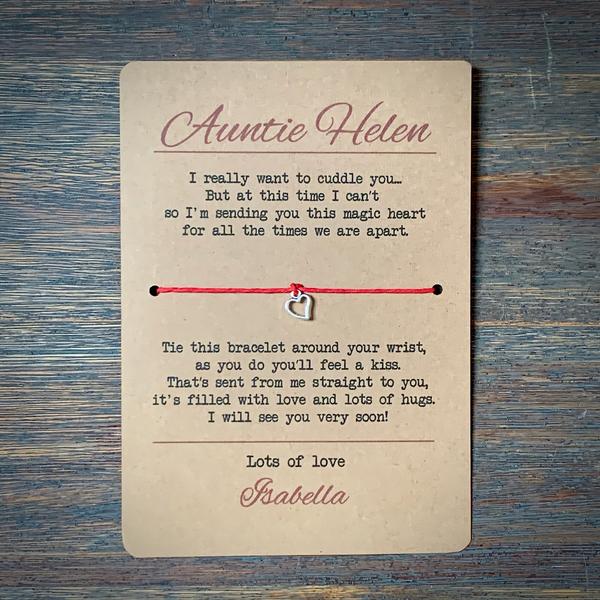 Auntie Helen
I really want to cuddle you...
But at this time I can't
so I'm sending you this magic heart
for all the times we are apart.
Tie this bracelet around your wrist,
as you do you'll feel a kiss.
That's sent from me straight to you,
it's filled with love and lots of hugs.
I will see you very soon!
Lots of love
Isabella